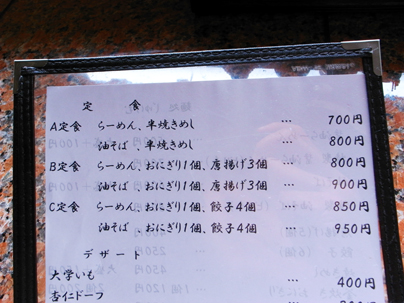 定 食
A定食 らーめん、半焼きめし … 700円
油そば、半焼きめし … 800円
B定食 らーめん、おにぎり1個、唐揚げ3個 … 800円
油そば、おにぎり1個、唐揚げ3個 … 900円
C定食 らーめん、おにぎり1個、餃子4個 … 850円
油そば、おにぎり1個、餃子4個 … 950円
デザート
大学いも … 400円
杏仁ドーフ